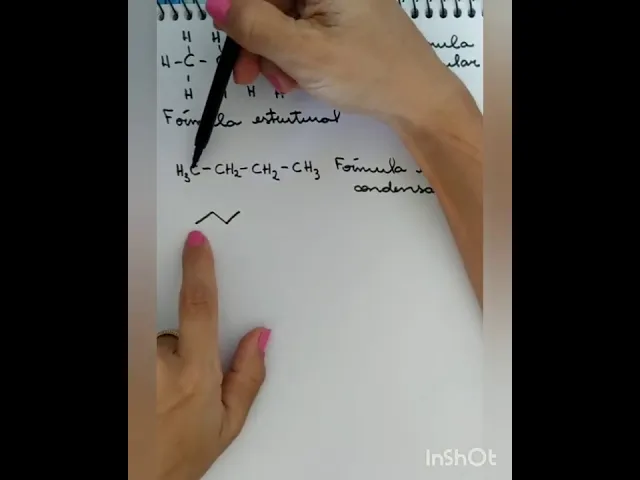 H H ula
H-C- ular
H H H
Fórmula estrutural
H3C-CH2-CH2-CH3 Fórmula
condensa
InShOt